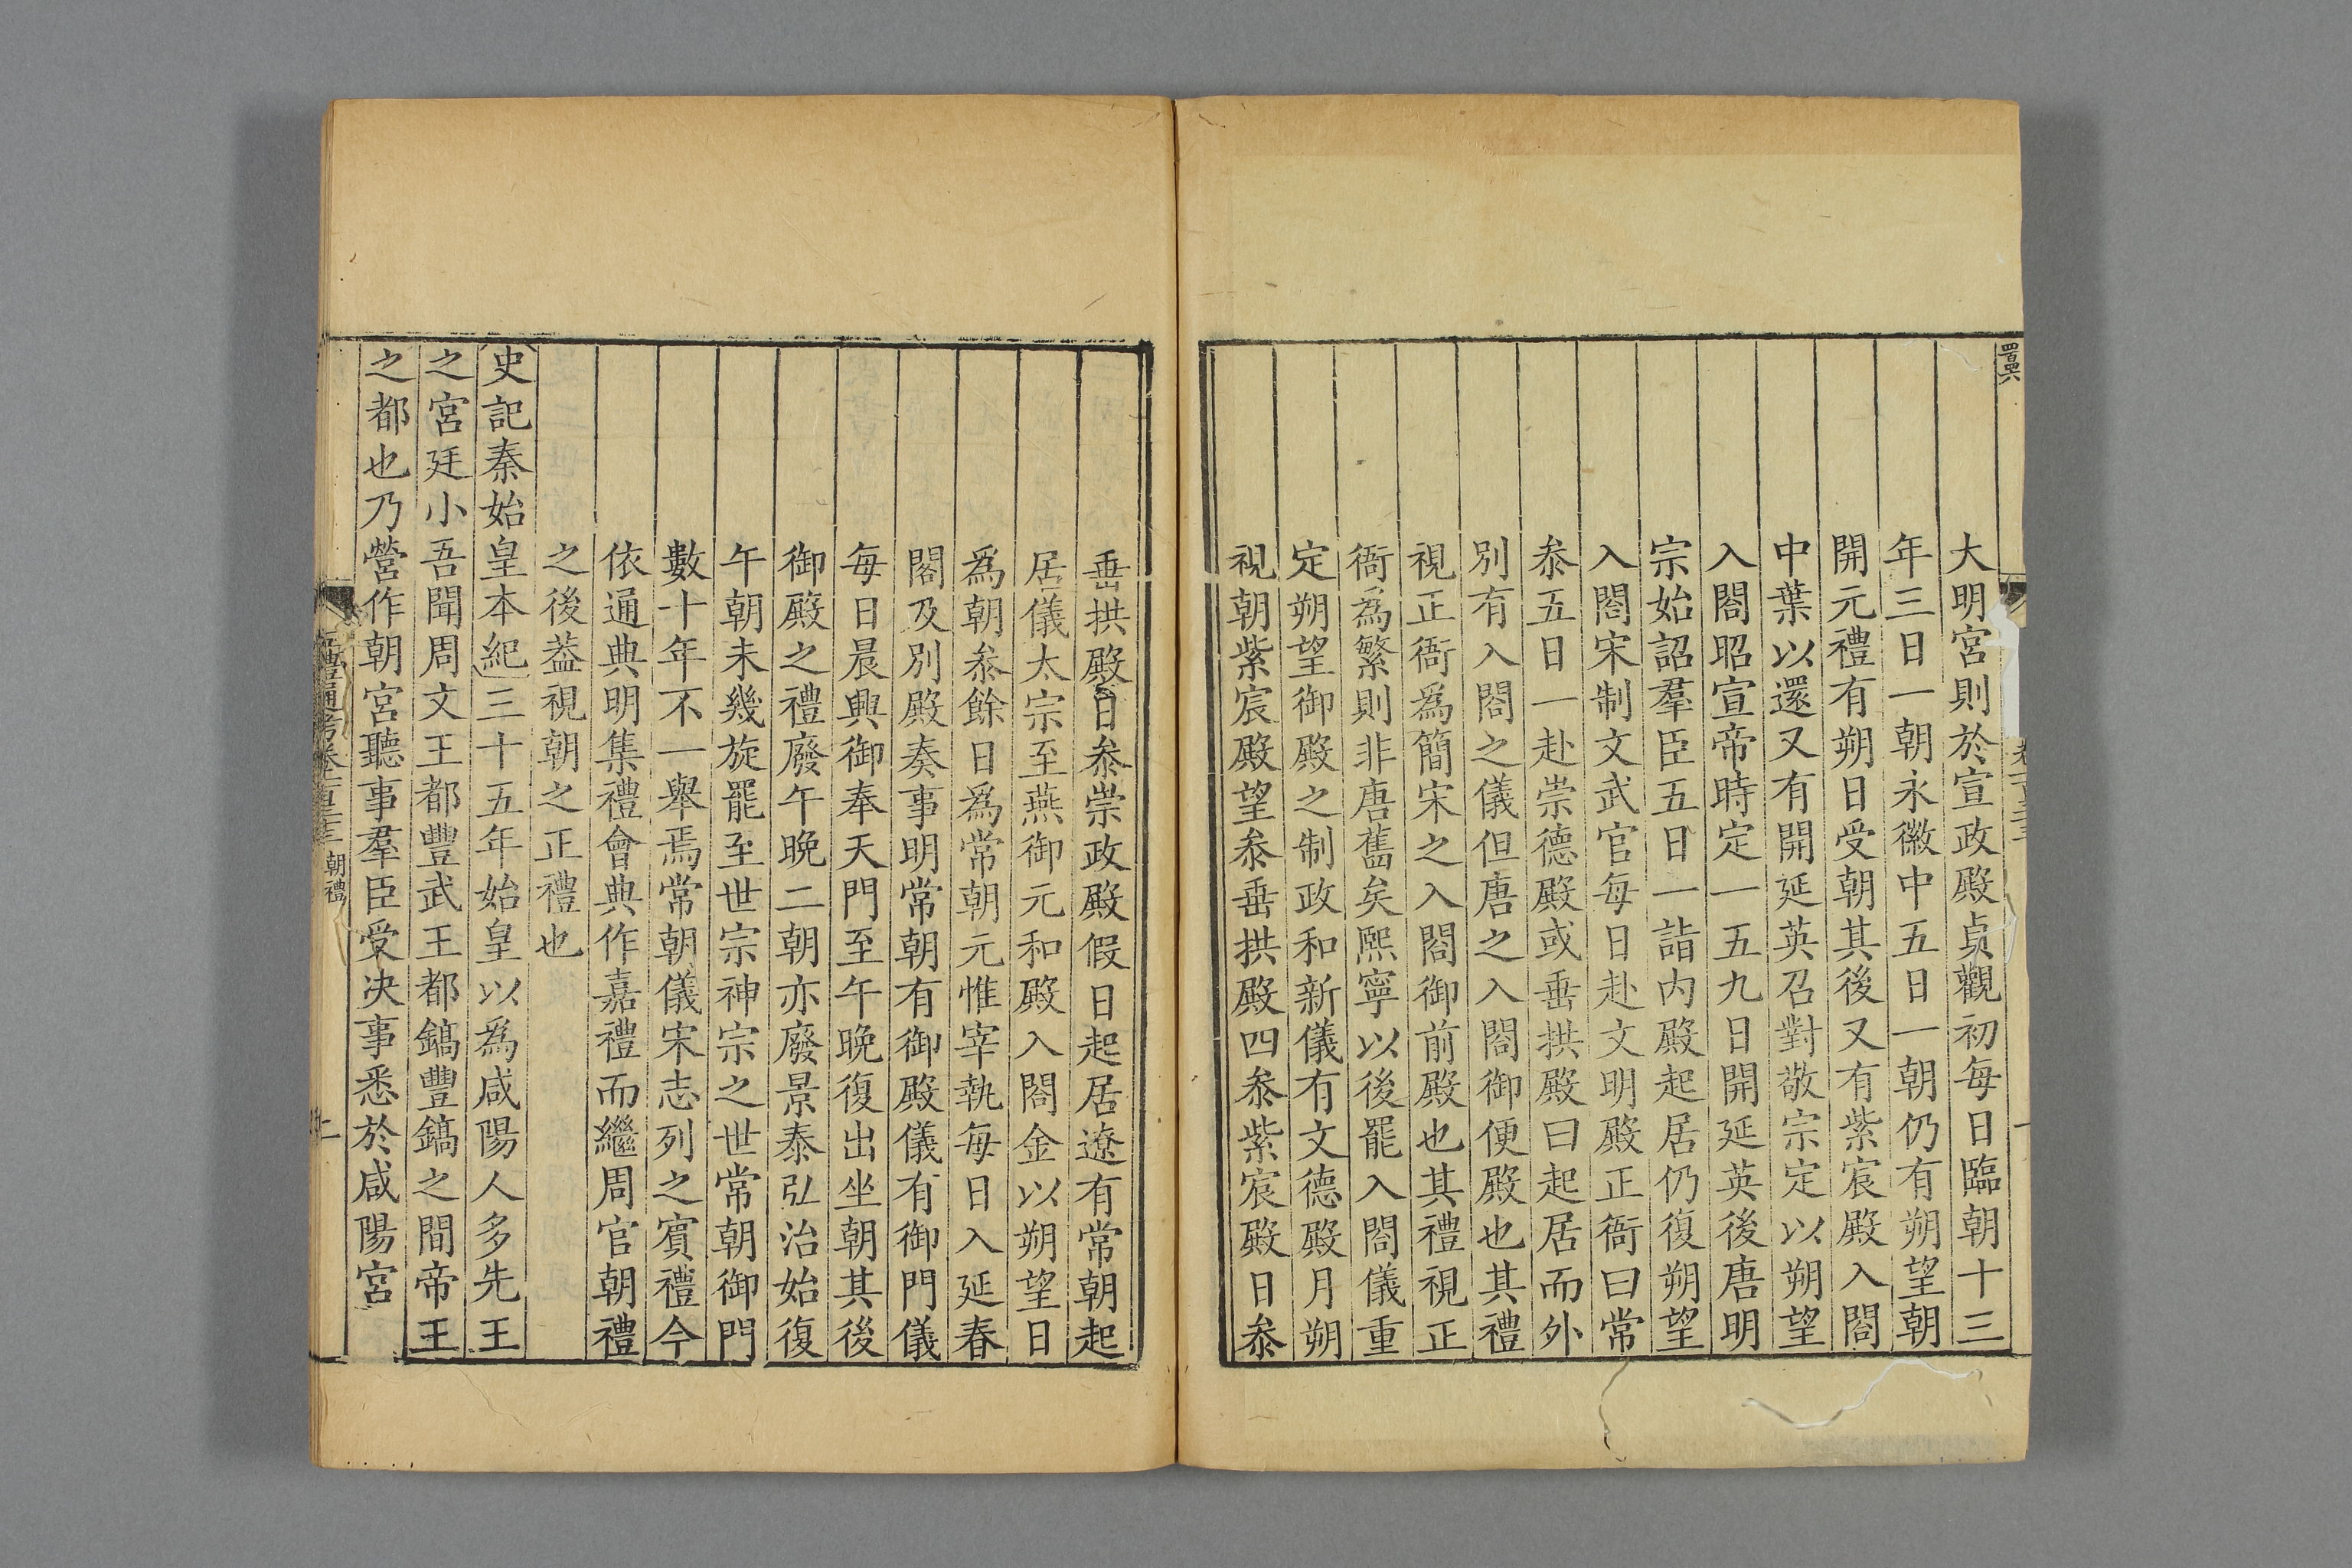 大明宮則於宣政殿貞觀初每日臨朝十三
年三日一朝永徽中五日一朝仍有朔望朝
開元禮有朔日受朝其後又有紫宸殿入閤
中葉以還又有開延英召對敬宗定以朔望
入閤昭宣帝時定一五九日開延英後唐明
宗始詔羣臣五日一詣内殿起居仍復朔望
入閤宋制文武官每日赴文明殿正衙曰常
叅五日一赴崇德殿或垂拱殿曰起居而外
別有入閤之儀但唐之入閤御便殿也其禮
視正衙爲簡宋之入閤御前殿也其禮視正
衙爲繁則非唐舊矣熙寧以後罷入閤儀重
定朔望御殿之制政和新儀有文德殿月朔
視朝紫宸殿望叅垂拱殿四叅紫宸殿日叅
垂拱殿日叅崇政殿假日起居遼有常朝起
居儀太宗至燕御元和殿入閤金以朔望日
爲朝叅餘日爲常朝元惟宰執每日入延春
閣及別殿奏事明常朝有御殿儀有御門儀
每日晨興御奉天門至午晚復出坐朝其後
御殿之禮廢午晚二朝亦廢景泰弘治始復
午朝未幾旋罷至世宗神宗之世常朝御門
數十年不一舉焉常朝儀宋志列之賓禮今
依通典明集禮會典作嘉禮而繼周官朝禮
之後葢視朝之正禮也
史記秦始皇本紀三十五年始皇以爲咸陽人多先王
之宮廷小吾聞周文王都豐武王都鎬豐鎬之間帝王
之都也乃營作朝宮聽事羣臣受决事悉於咸陽宮
五禮通考卷一百三十三 朝禮 二